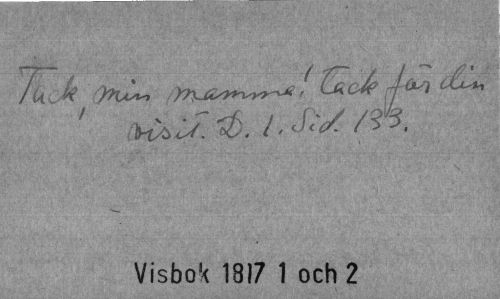 Tack, min mamma! tack för din
visit. D. 1. Sid. 133.
Visbok 1817 1 och 2